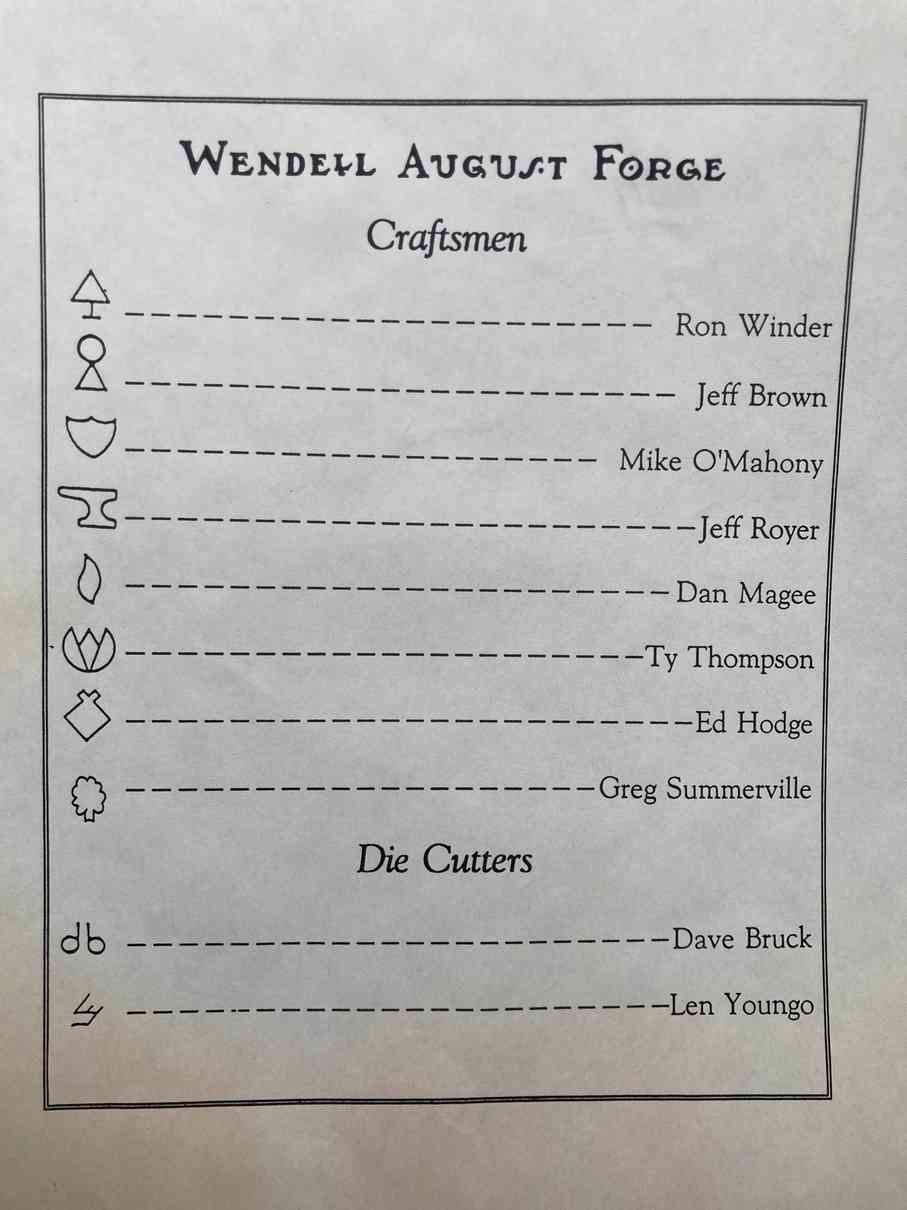 Wendell August Forge
Craftsmen
Ron Winder
Jeff Brown
Mike O'Mahony
Jeff Royer
Dan Magee
Ty Thompson
Ed Hodge
Greg Summerville
Die Cutters
db Dave Bruck
Ly Len Youngo